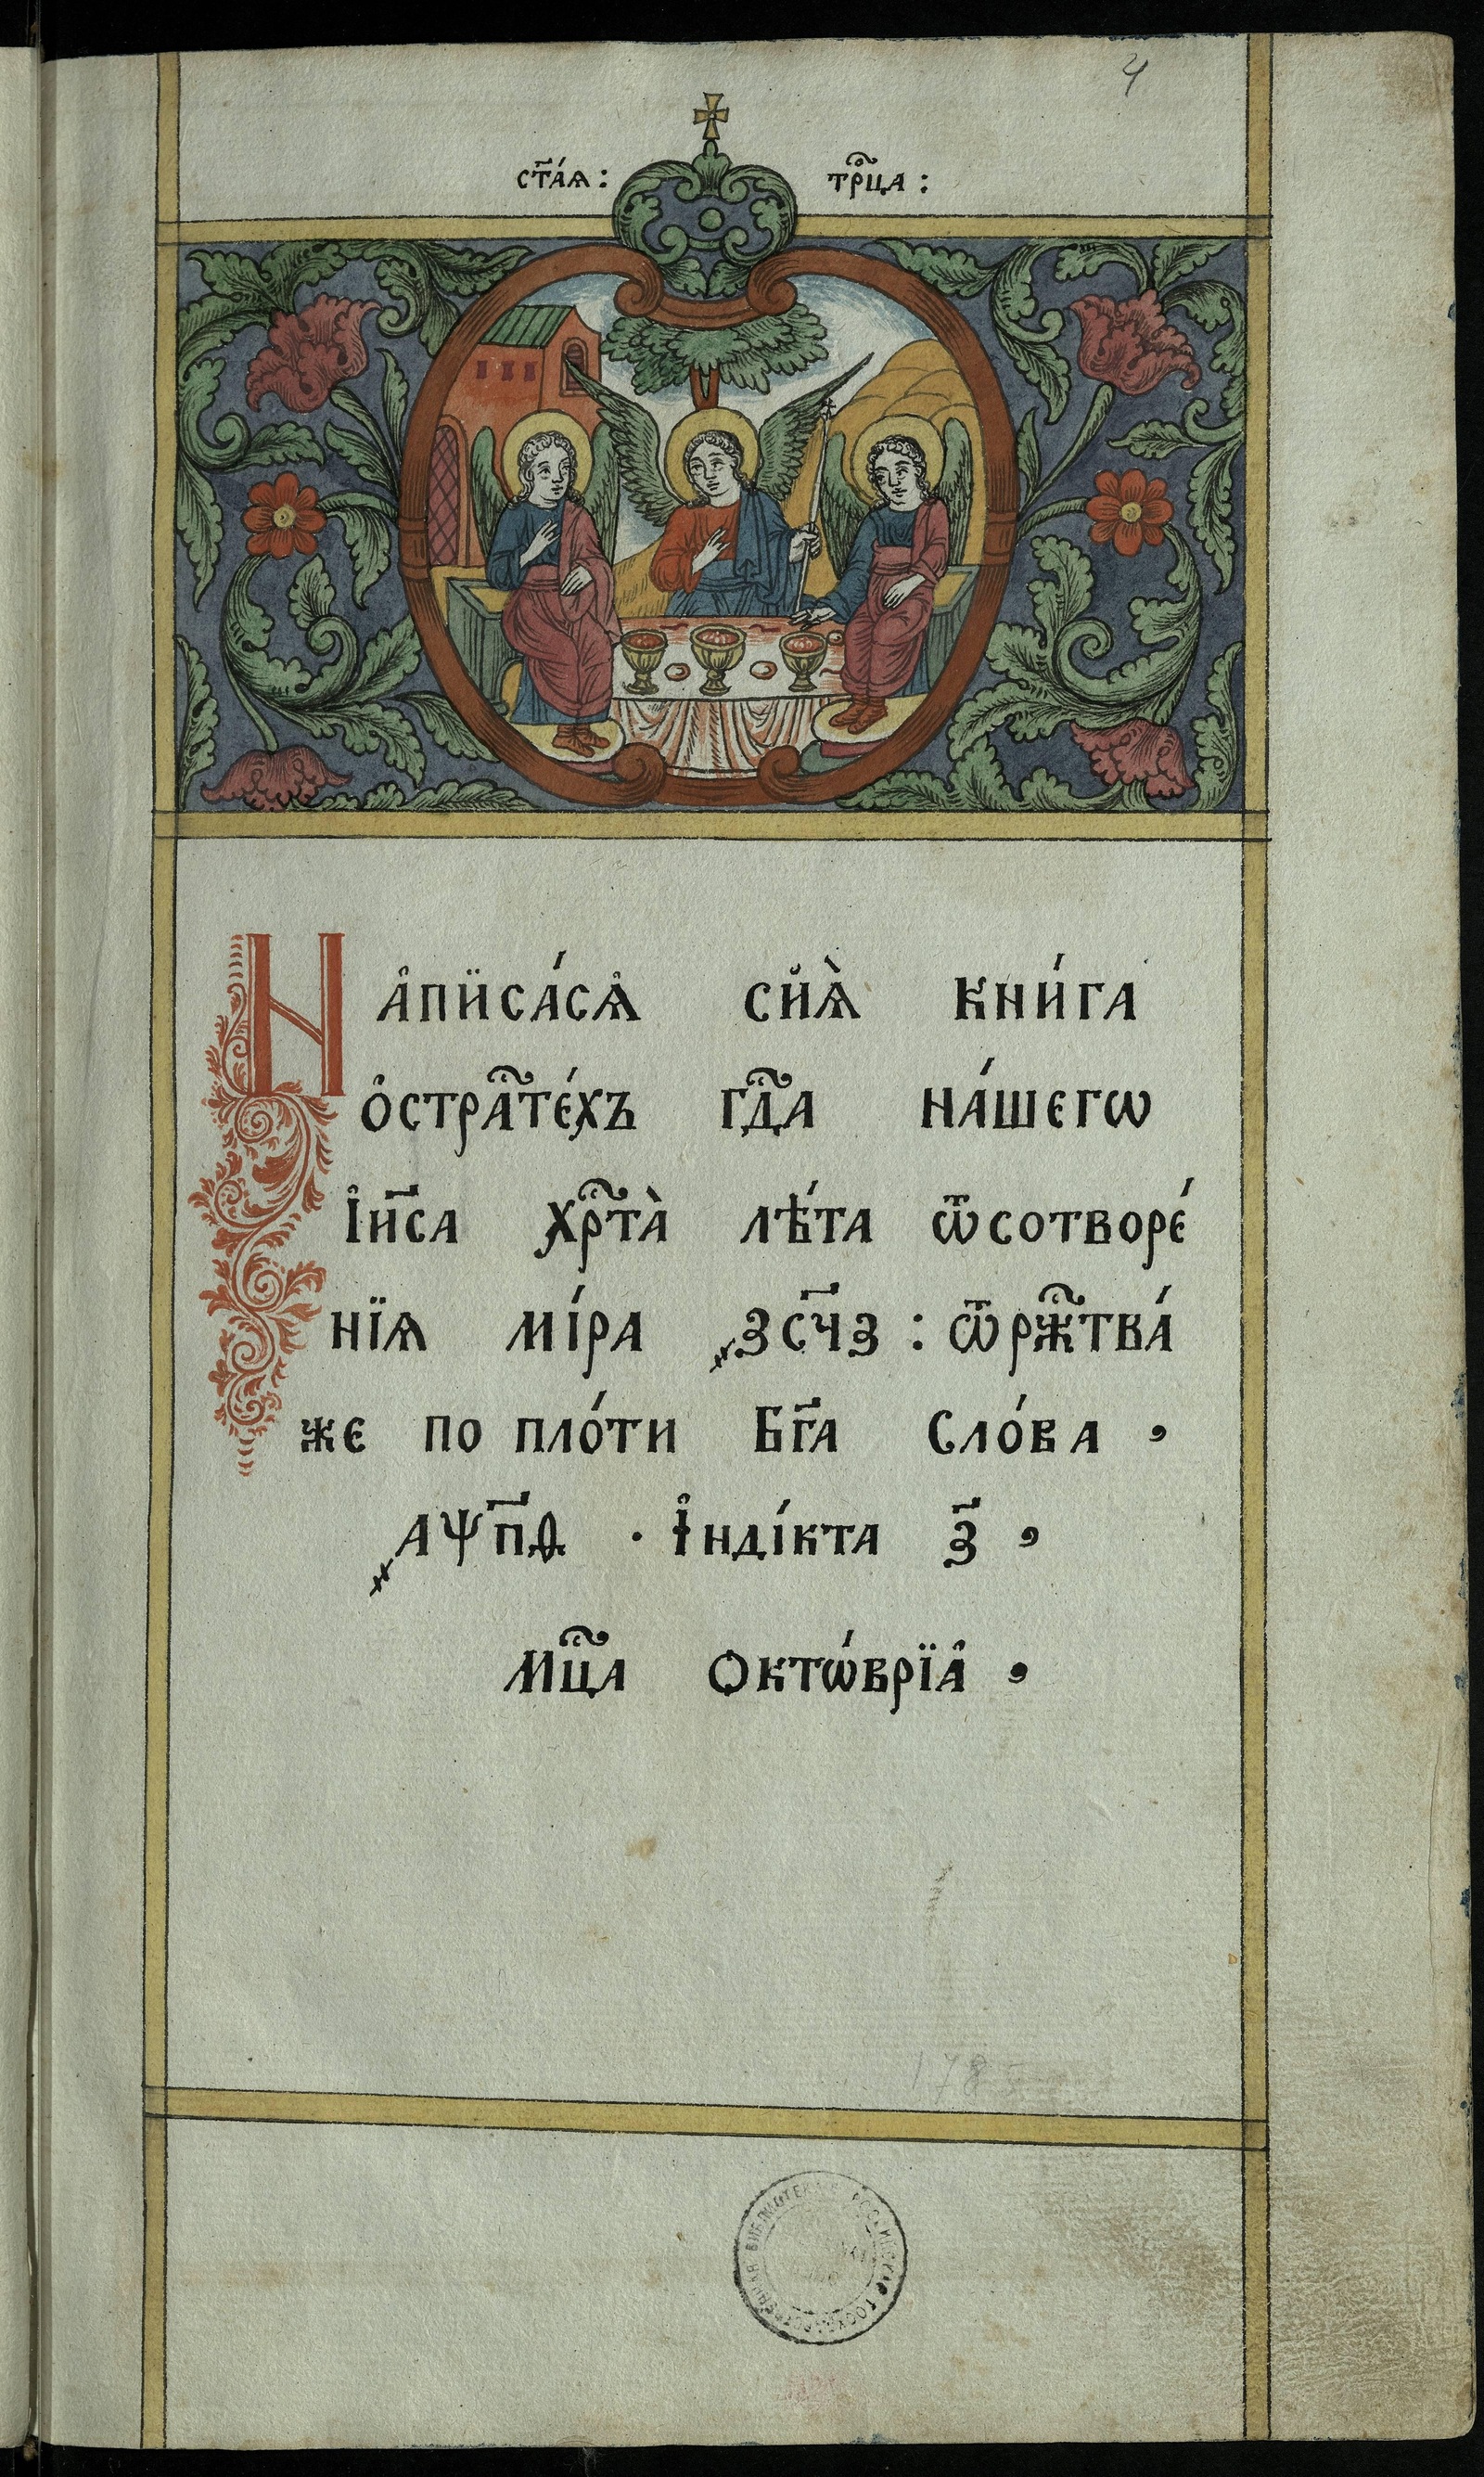 4
ст҃а́ѧ : трⷪ҇ца :
На҆пи̑са́сѧ҆ сиѧ̀ кни́га
о҆страⷭ҇те́хъ гдⷭ҇а на́шегѡ
І҆и҃са хрⷭ҇та̀ лѣ́та ѿсотворе́
нїѧ мі́ра ҂зс҃чз : ѿржⷭ҇тва́
же по пло́ти Бг҃а Сло́ва ,
҂аѱп҃ѳ · І҆нді́кта з҃ ,
Мцⷭ҇а Октѡ́врїа҆ ,